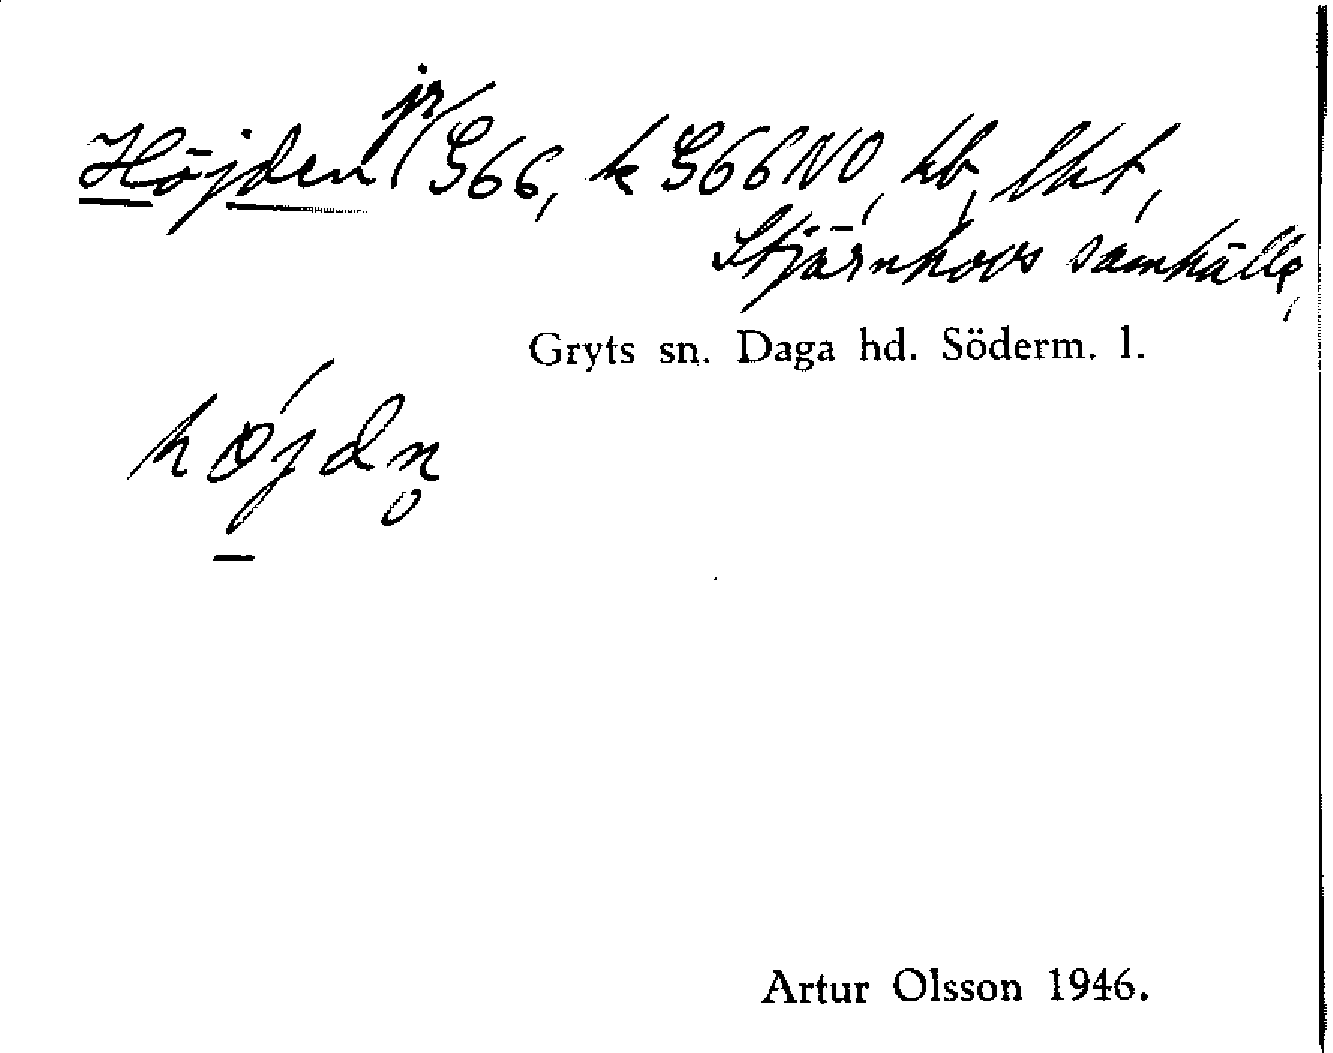 Höjden jr (G66, k G66NO, hb, lht,
Stjärnhovs samhälle,
Gryts sn. Daga hd. Söderm. l.
hø̀jdn̥
Artur Olsson 1946.